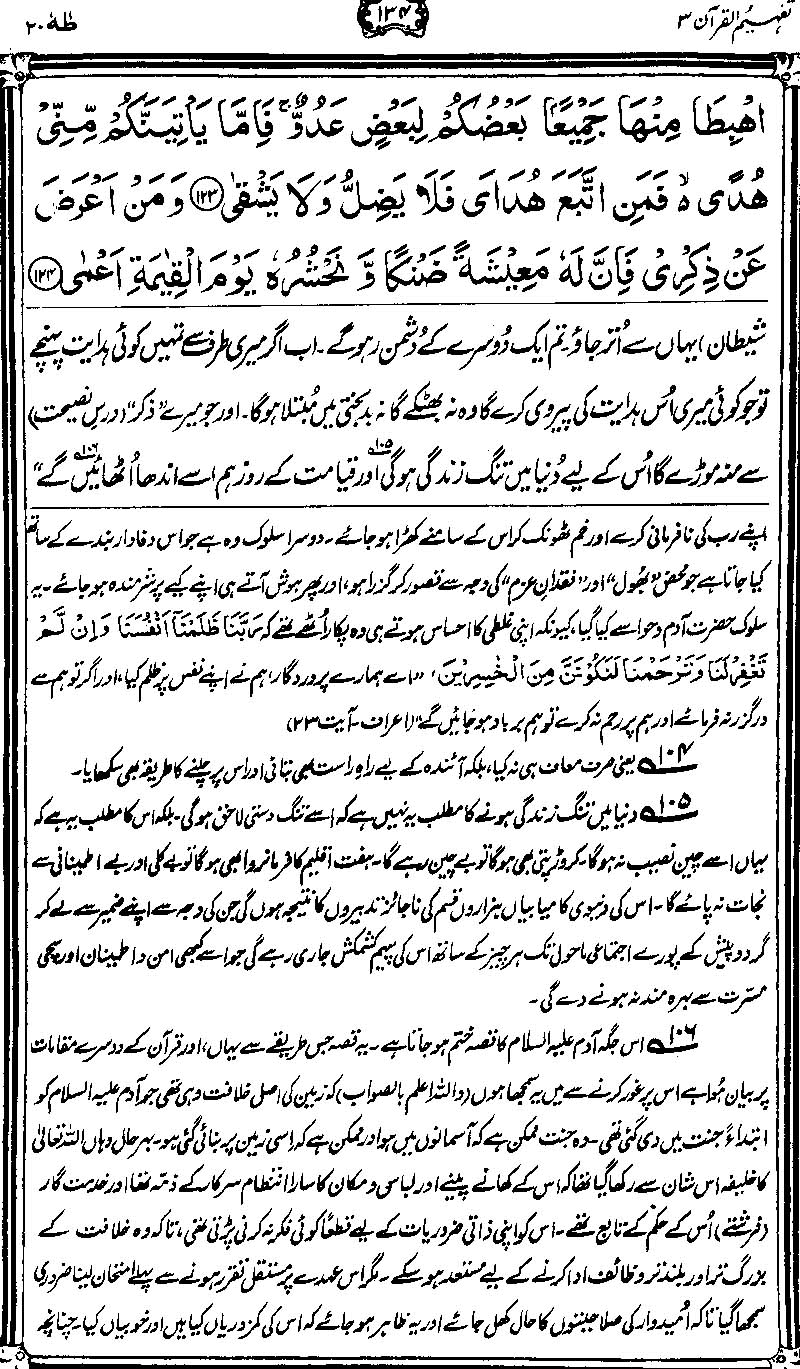 تفہیم القرآن ۳
۱۳۴
طٰہٰ ۲۰
اهْبِطَا مِنْهَا جَمِيْعًۢا بَعْضُكُمْ لِبَعْضٍ عَدُوٌّ ۚ فَاِمَّا يَاْتِيَنَّكُمْ مِّنِّيْ
هُدًى ۙ فَمَنِ اتَّبَعَ هُدَايَ فَلَا يَضِلُّ وَلَا يَشْقٰى ۝۱۲۳ وَمَنْ اَعْرَضَ
عَنْ ذِكْرِيْ فَاِنَّ لَهٗ مَعِيْشَةً ضَنْكًا وَّ نَحْشُرُهٗ يَوْمَ الْقِيٰمَةِ اَعْمٰى ۝۱۲۴
شیطان) یہاں سے اُتر جاؤ۔ تم ایک دُوسرے کے دُشمن رہو گے۔ اب اگر میری طرف سے تمہیں کوئی ہدایت پہنچے
تو جو کوئی میری اُس ہدایت کی پیروی کرے گا وہ نہ بھٹکے گا نہ بدبختی میں مُبتلا ہوگا۔ اور جو میرے ”ذکر“ (درسِ نصیحت)
سے منہ موڑے گا اُس کے لیے دُنیا میں تنگ زندگی ہوگی۱۰۵ اور قیامت کے روز ہم اسے اندھا اُٹھائیں گے۱۰۶“
اپنے رب کی نافرمانی کرے اور خم ٹھونک کر اس کے سامنے کھڑا ہو جائے۔ دوسرا سلوک وہ ہے جو اس وفادار بندے کے ساتھ
کیا جاتا ہے جو محض ”بھول“ اور ”فقدانِ عزم“ کی وجہ سے قصور کر گزرا ہو، اور پھر ہوش آتے ہی اپنے کیے پر شرمندہ ہو جائے۔ یہ
سلوک حضرت آدم و حوا سے کیا گیا، کیونکہ اپنی غلطی کا احساس ہوتے ہی وہ پکار اُٹھے تھے کہ رَبَّنَا ظَلَمْنَآ اَنْفُسَنَا وَاِنْ لَّمْ
تَغْفِرْ لَنَا وَتَرْحَمْنَا لَنَكُوْنَنَّ مِنَ الْخٰسِرِيْنَ، ”اے ہمارے پروردگار، ہم نے اپنے نفس پر ظلم کیا، اور اگر تو ہم سے
درگزر نہ فرمائے اور ہم پر رحم نہ کرے تو ہم برباد ہو جائیں گے“ (اعراف۔ آیت ۲۳)
۱۰۴ یعنی صرف معاف ہی نہ کیا، بلکہ آئندہ کے لیے راہِ راست بھی بتائی اور اس پر چلنے کا طریقہ بھی سکھایا۔
۱۰۵ دنیا میں تنگ زندگی ہونے کا مطلب یہ نہیں ہے کہ اسے تنگ دستی لاحق ہوگی۔ بلکہ اس کا مطلب یہ ہے کہ
یہاں اسے چین نصیب نہ ہوگا۔ کروڑ پتی بھی ہوگا تو بے چین رہے گا۔ ہفت اقلیم کا فرمانروا بھی ہوگا تو بے کلی اور بے اطمینانی سے
نجات نہ پائے گا۔ اس کی دنیوی کامیابیاں ہزاروں قسم کی ناجائز تدبیروں کا نتیجہ ہوں گی جن کی وجہ سے اپنے ضمیر سے لے کر
گرد و پیش کے پورے اجتماعی ماحول تک ہر چیز کے ساتھ اس کی پیہم کشمکش جاری رہے گی جو اسے کبھی امن و اطمینان اور سچی
مسرّت سے بہرہ مند نہ ہونے دے گی۔
۱۰۶ اس جگہ آدم علیہ السلام کا قصہ ختم ہو جاتا ہے۔ یہ قصہ جس طریقے سے یہاں، اور قرآن کے دوسرے مقامات
پر بیان ہوا ہے اس پر غور کرنے سے میں یہ سمجھا ہوں (واللہ اعلم بالصواب) کہ زمین کی اصل خلافت وہی تھی جو آدم علیہ السلام کو
ابتداءً جنت میں دی گئی تھی۔ وہ جنت ممکن ہے کہ آسمانوں میں ہو اور ممکن ہے کہ اسی زمین پر بنائی گئی ہو۔ بہر حال وہاں اللہ تعالیٰ
کا خلیفہ اس شان سے رکھا گیا تھا کہ اس کے کھانے پینے اور لباس و مکان کا سارا انتظام سرکار کے ذمہ تھا اور خدمت گار
(فرشتے) اُس کے حکم کے تابع تھے۔ اس کو اپنی ذاتی ضروریات کے لیے قطعاً کوئی فکر نہ کرنی پڑتی تھی، تاکہ وہ خلافت کے
بزرگ تر اور بلند تر وظائف ادا کرنے کے لیے مستعد ہو سکے۔ مگر اس عہدے پر مستقل تقرر ہونے سے پہلے امتحان لینا ضروری
سمجھا گیا تاکہ اُمیدوار کی صلاحیتوں کا حال کھل جائے اور یہ ظاہر ہو جائے کہ اس کی کمزوریاں کیا ہیں اور خوبیاں کیا۔ چنانچہ